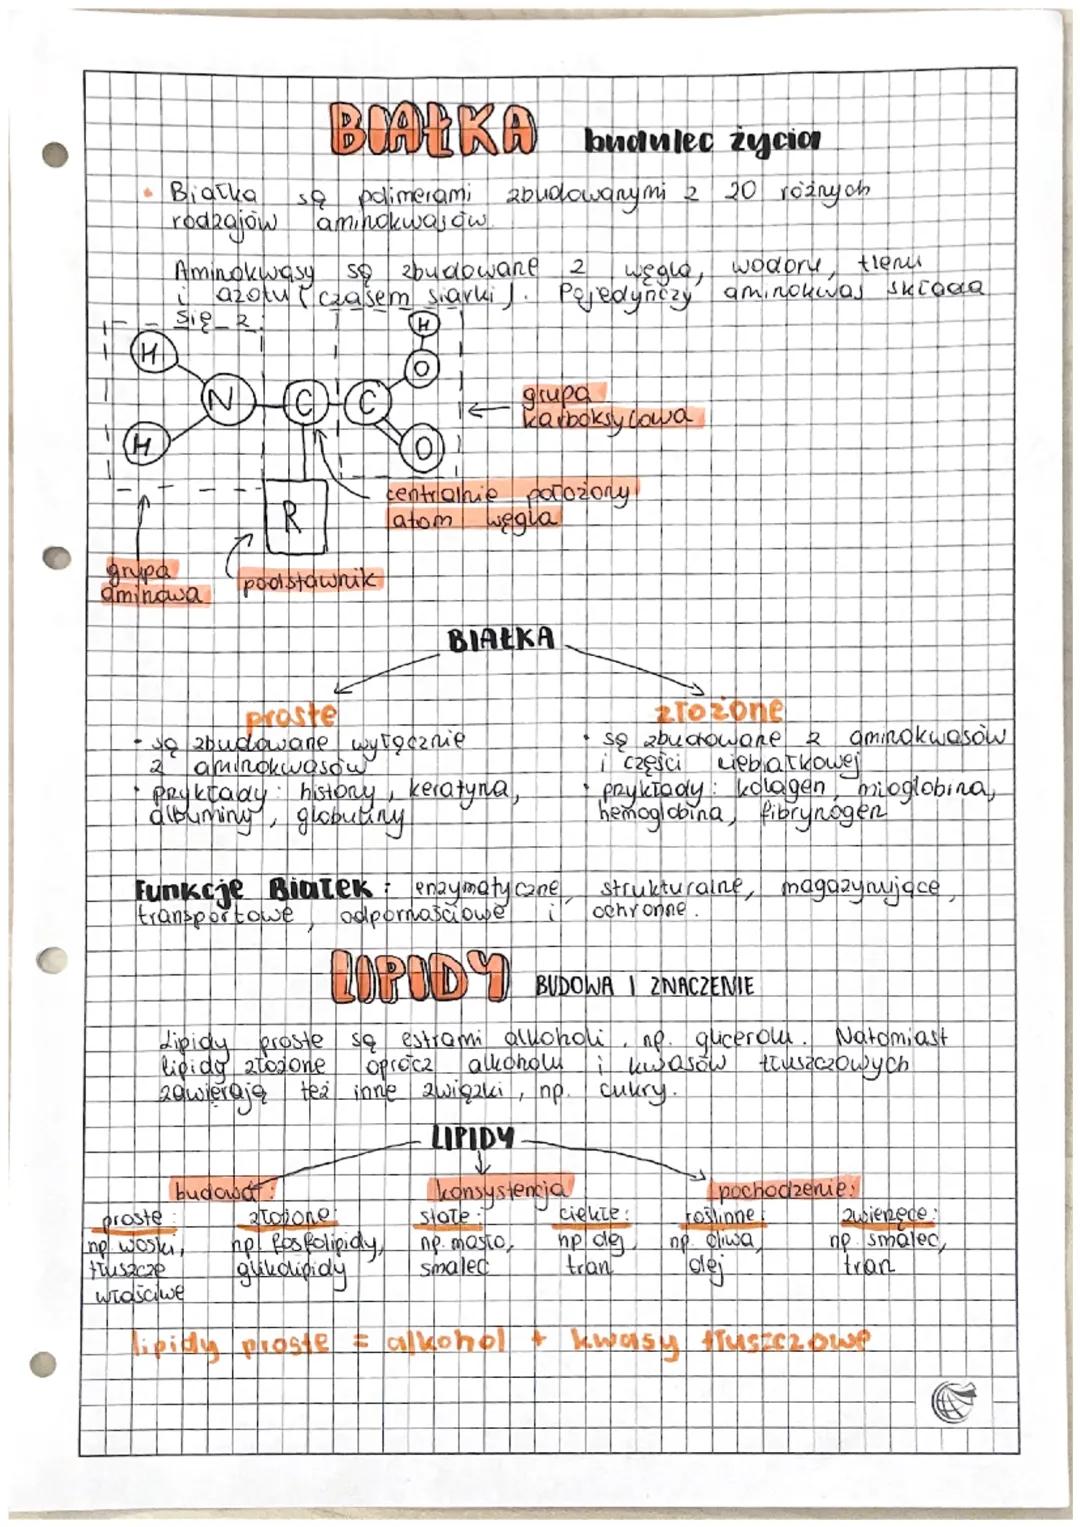 BIAŁKA budulec życia
• Białka są polimerami zbudowanymi z 20 różnych
rodzajów aminokwasów.
Aminokwasy są zbudowane z węgla, wodoru, tlenu
i azotu (czasem siarki). Pojedynczy aminokwas składa
się z:
H
H
O
N C C
H
O
R
grupa
karboksylowa
centralnie położony
atom węgla
grupa
aminowa
podstawnik
BIAŁKA
proste
- są zbudowane wyłącznie
z aminokwasów
• przykłady: histony, keratyna,
albuminy, globuliny
złożone
• są zbudowane z aminokwasów
i części niebiałkowej
• przykłady: kolagen, mioglobina,
hemoglobina, fibrynogen
Funkcje Białek: enzymatyczne, strukturalne, magazynujące,
transportowe, odpornościowe i ochronne.
LIPIDY BUDOWA I ZNACZENIE
Lipidy proste są estrami alkoholi, np. glicerolu. Natomiast
lipidy złożone oprócz alkoholu i kwasów tłuszczowych
zawierają też inne związki, np. cukry.
LIPIDY
budowa: konsystencja pochodzenie:
proste: złożone: stałe: ciekłe: roślinne: zwierzęce:
np. woski, np. fosfolipidy, np. masło, np olej, np. oliwa, np. smalec,
tłuszcze glikolipidy smalec tran olej tran
właściwe
lipidy proste = alkohol + kwasy tłuszczowe